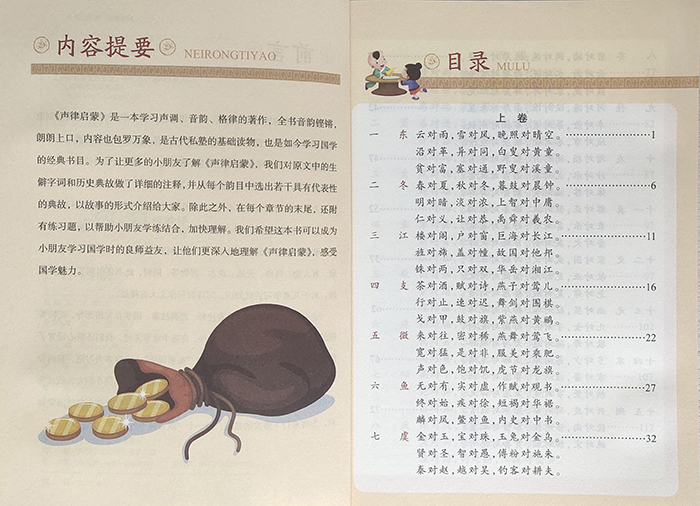 内容提要
NEIRONGTIYAO
《声律启蒙》是一本学习声调、音韵、格律的著作，全书音韵铿锵，
朗朗上口，内容也包罗万象，是古代私塾的基础读物，也是如今学习国学
的经典书目。为了让更多的小朋友了解《声律启蒙》，我们对原文中的生
僻字词和历史典故做了详细的注释，并从每个韵目中选出若干具有代表性
的典故，以故事的形式介绍给大家。除此之外，在每个章节的末尾，还附
有练习题，以帮助小朋友学练结合，加快理解。我们希望这本书可以成为
小朋友学习国学时的良师益友，让他们更深入地理解《声律启蒙》，感受
国学魅力。
目录
MULU
上卷
一 东 云对雨，雪对风，晚照对晴空。 1
沿对革，异对同，白叟对黄童。
贫对富，塞对通，野叟对溪童。
二 冬 春对夏，秋对冬，暮鼓对晨钟。 6
明对暗，淡对浓，上智对中庸。
仁对义，让对恭，禹舜对羲农。
三 江 楼对阁，户对窗，巨海对长江。 11
旌对旆，盖对幢，故国对他邦。
铢对两，只对双，华岳对湘江。
四 支 茶对酒，赋对诗，燕子对莺儿。 16
行对止，速对迟，舞剑对围棋。
戈对甲，鼓对旗，紫燕对黄鹂。
五 微 来对往，密对稀，燕舞对莺飞。 22
宽对猛，是对非，服美对乘肥。
声对色，饱对饥，虎节对龙旗。
六 鱼 无对有，实对虚，作赋对观书。 27
终对始，疾对徐，短褐对华裾。
麟对凤，鳖对鱼，内史对中书。
七 虞 金对玉，宝对珠，玉兔对金乌。 32
贤对圣，智对愚，傅粉对施朱。
秦对赵，越对吴，钓客对耕夫。